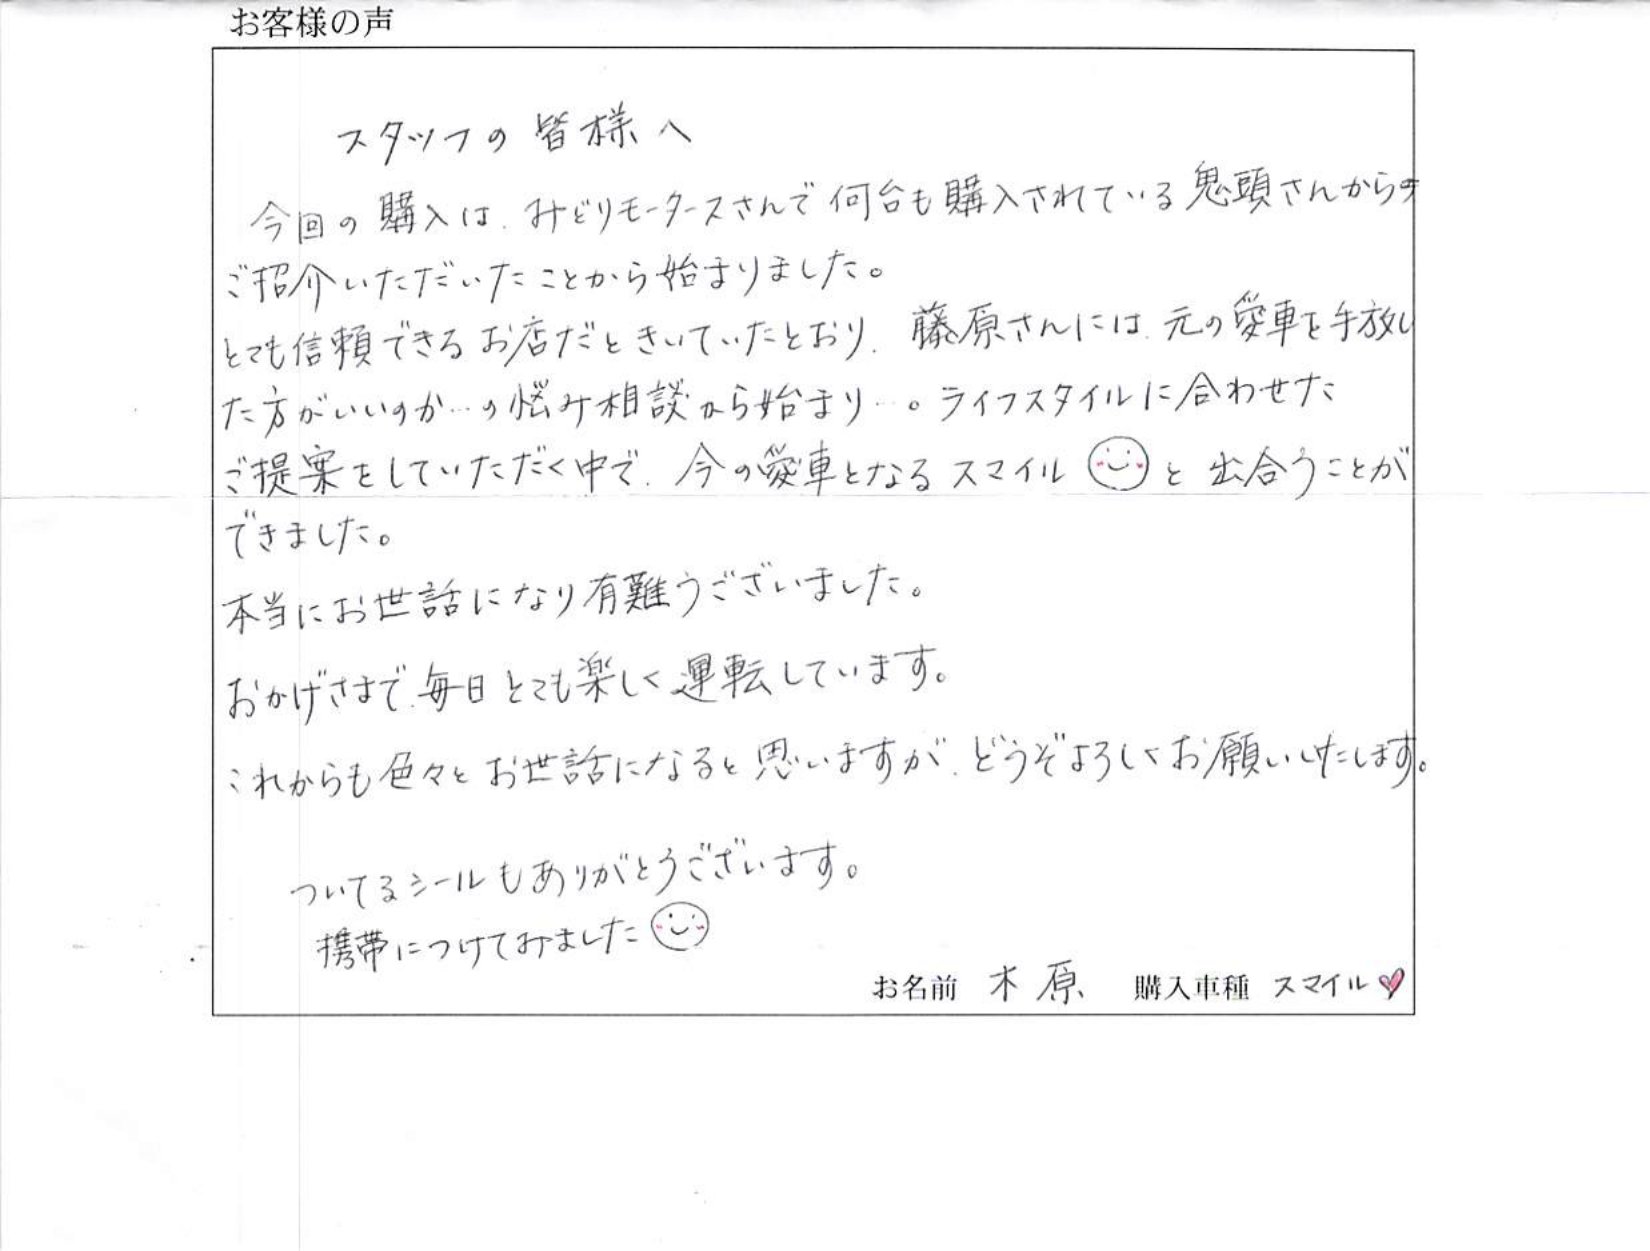 お客様の声
スタッフの皆様へ
今回の購入は、みどりモータースさんで何台も購入されている鬼頭さんからの
ご紹介いただいたことから始まりました。
とても信頼できるお店だときいていたとおり、藤原さんには、元の愛車を手放し
た方がいいのか…の悩み相談から始まり…。ライフスタイルに合わせた
ご提案をしていただく中で、今の愛車となるスマイルと出合うことが
できました。
本当にお世話になり有難うございました。
おかげさまで、毎日とても楽しく運転しています。
これからも色々とお世話になると思いますが、どうぞよろしくお願いいたします。
ついてるシールもありがとうございます。
携帯につけてみました
お名前 木原 購入車種 スマイル